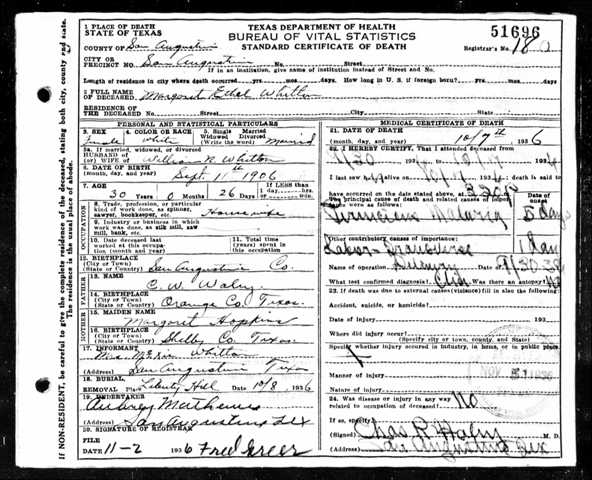 1 PLACE OF DEATH
STATE OF TEXAS
TEXAS DEPARTMENT OF HEALTH
BUREAU OF VITAL STATISTICS
STANDARD CERTIFICATE OF DEATH
51696
COUNTY OF San Augustine
Registrar's No. 18
CITY OR
PRECINCT No. San Augustine No. Street
If in an institution, give name of institution instead of Street and No.
Length of residence in city where death occurred yrs. mos. days. How long in U. S. if foreign born? yrs. mos. days
2 FULL NAME
OF DECEASED Margaret Ethel Whitton
RESIDENCE OF
THE DECEASED No. Street City State
PERSONAL AND STATISTICAL PARTICULARS
3. SEX female
4. COLOR OR RACE white
5. Single Married
Widowed Divorced
(Write the word) Married
5a. If married, widowed, or divorced
HUSBAND OF
(or) WIFE OF William R Whitton
6. DATE OF BIRTH
(Month, day, year) Sept. 11th 1906
7. AGE 30 Years 0 Months 26 Days
If LESS than
1 day,
hrs.
min.
OCCUPATION
8. Trade, profession, or particular
kind of work done, as spinner,
sawyer, bookkeeper, etc. Housewife
9. Industry or business in which
work was done, as silk mill, saw
mill, bank, etc.
10. Date deceased last
worked at this occupation
(month and year)
11. Total time
(years) spent in
this occupation
12. BIRTHPLACE
(City or Town)
(State or Country) San Augustine Co.
FATHER
13. NAME C. W.
14. BIRTHPLACE
(City or Town)
(State or Country) Orange Co. Texas.
MOTHER
15. MAIDEN NAME Margaret Hopkins
16. BIRTHPLACE
(City or Town)
(State or Country) Shelby Co Texas
17. INFORMANT
Mrs. Whitton
(Address) San Augustine Texas
18. BURIAL,
REMOVAL Place Liberty Hill Date 10/8 1936
19. UNDERTAKER
Aubrey Mathews
(Address) San Augustine Tex
20. SIGNATURE OF REGISTRAR
FILE
DATE 11-2 1936 Fred Greer
MEDICAL CERTIFICATE OF DEATH
21. DATE OF DEATH
(month, day, year) 10/7th 1936
22. I HEREBY CERTIFY, That I attended deceased from
9/30
I last saw alive on death is said to
have occurred on the date stated above, at 3:20 P.
The principal cause of death and related causes of importance
were as follows:
Date of
onset
Malaria 5 days
Other contributory causes of importance:
1 day
Name of operation Delivery Date of 9/30 36
What test confirmed diagnosis? Was there an autopsy? No
23. If death was due to external causes (violence) fill in also the following:
Accident, suicide, or homicide?
Date of Injury 193
Where did injury occur?
(Specify city or town, county, and State)
Specify whether injury occurred in industry, in home, or in public place.
Manner of injury
Nature of injury
24. Was disease or injury in any way
related to occupation of deceased? No
If so, specify
(Signed) Chas R Haley M. D.
San Augustine Tex
If NON-RESIDENT, be careful to give the complete residence of the deceased, stating both city, county and state.
The residence is the usual place of abode.